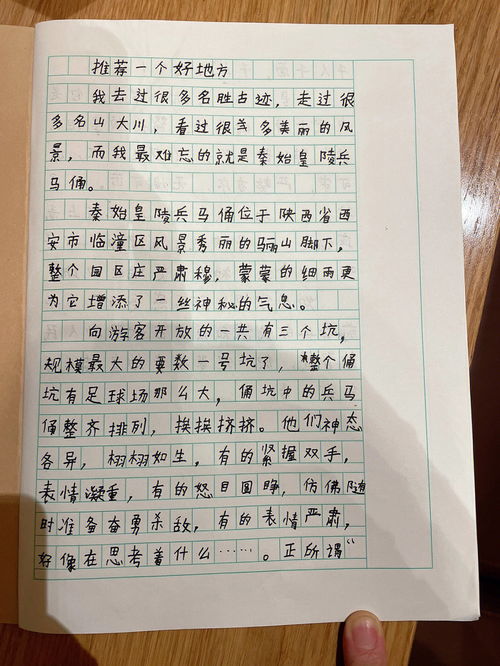 推荐一个好地方
我去过很多名胜古迹，走过很
多名山大川，看过很多多美丽的风
景，而我最难忘的就是秦始皇陵兵
马俑。
秦始皇陵兵马俑位于陕西省西
安市临潼区风景秀丽的骊山脚下，
整个园区庄严肃穆，蒙蒙的细雨更
为它增添了一丝神秘的气息。
向游客开放的一共有三个坑，
规模最大的要数一号坑了，整个俑
坑有足球场那么大，俑坑中的兵马
俑整齐排列，挨挨挤挤。他们神态
各异，栩栩如生，有的紧握双手，
表情凝重，有的怒目圆睁，仿佛随
时准备奋勇杀敌，有的表情严肃，
好像在思考着什么……。正所谓“